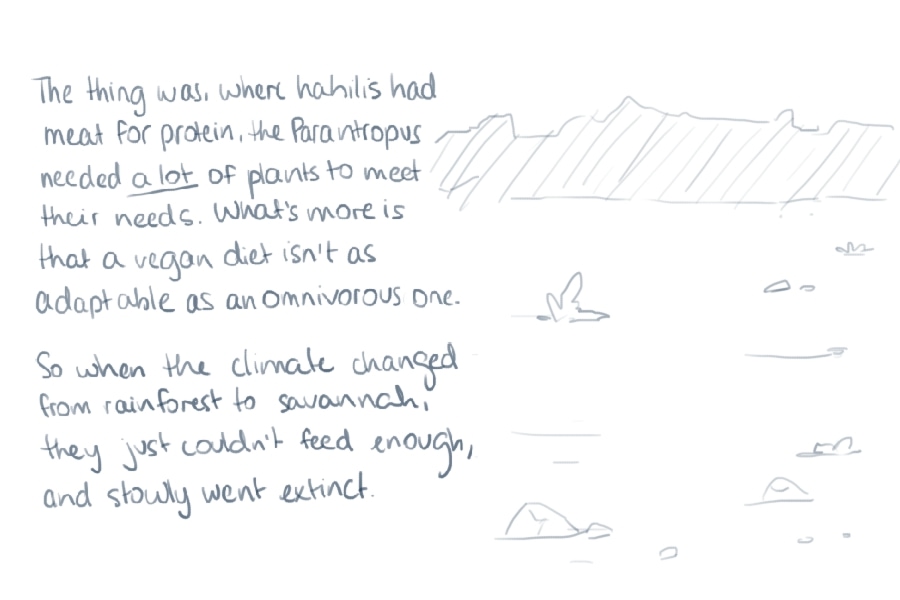 The thing was, where hahilis had
meat for protein, the Parantropus
needed a lot of plants to meet
their needs. What's more is
that a vegan diet isn't as
adaptable as an omnivorous one.
So when the climate changed
from rainforest to savannah,
they just couldn't feed enough,
and slowly went extinct.